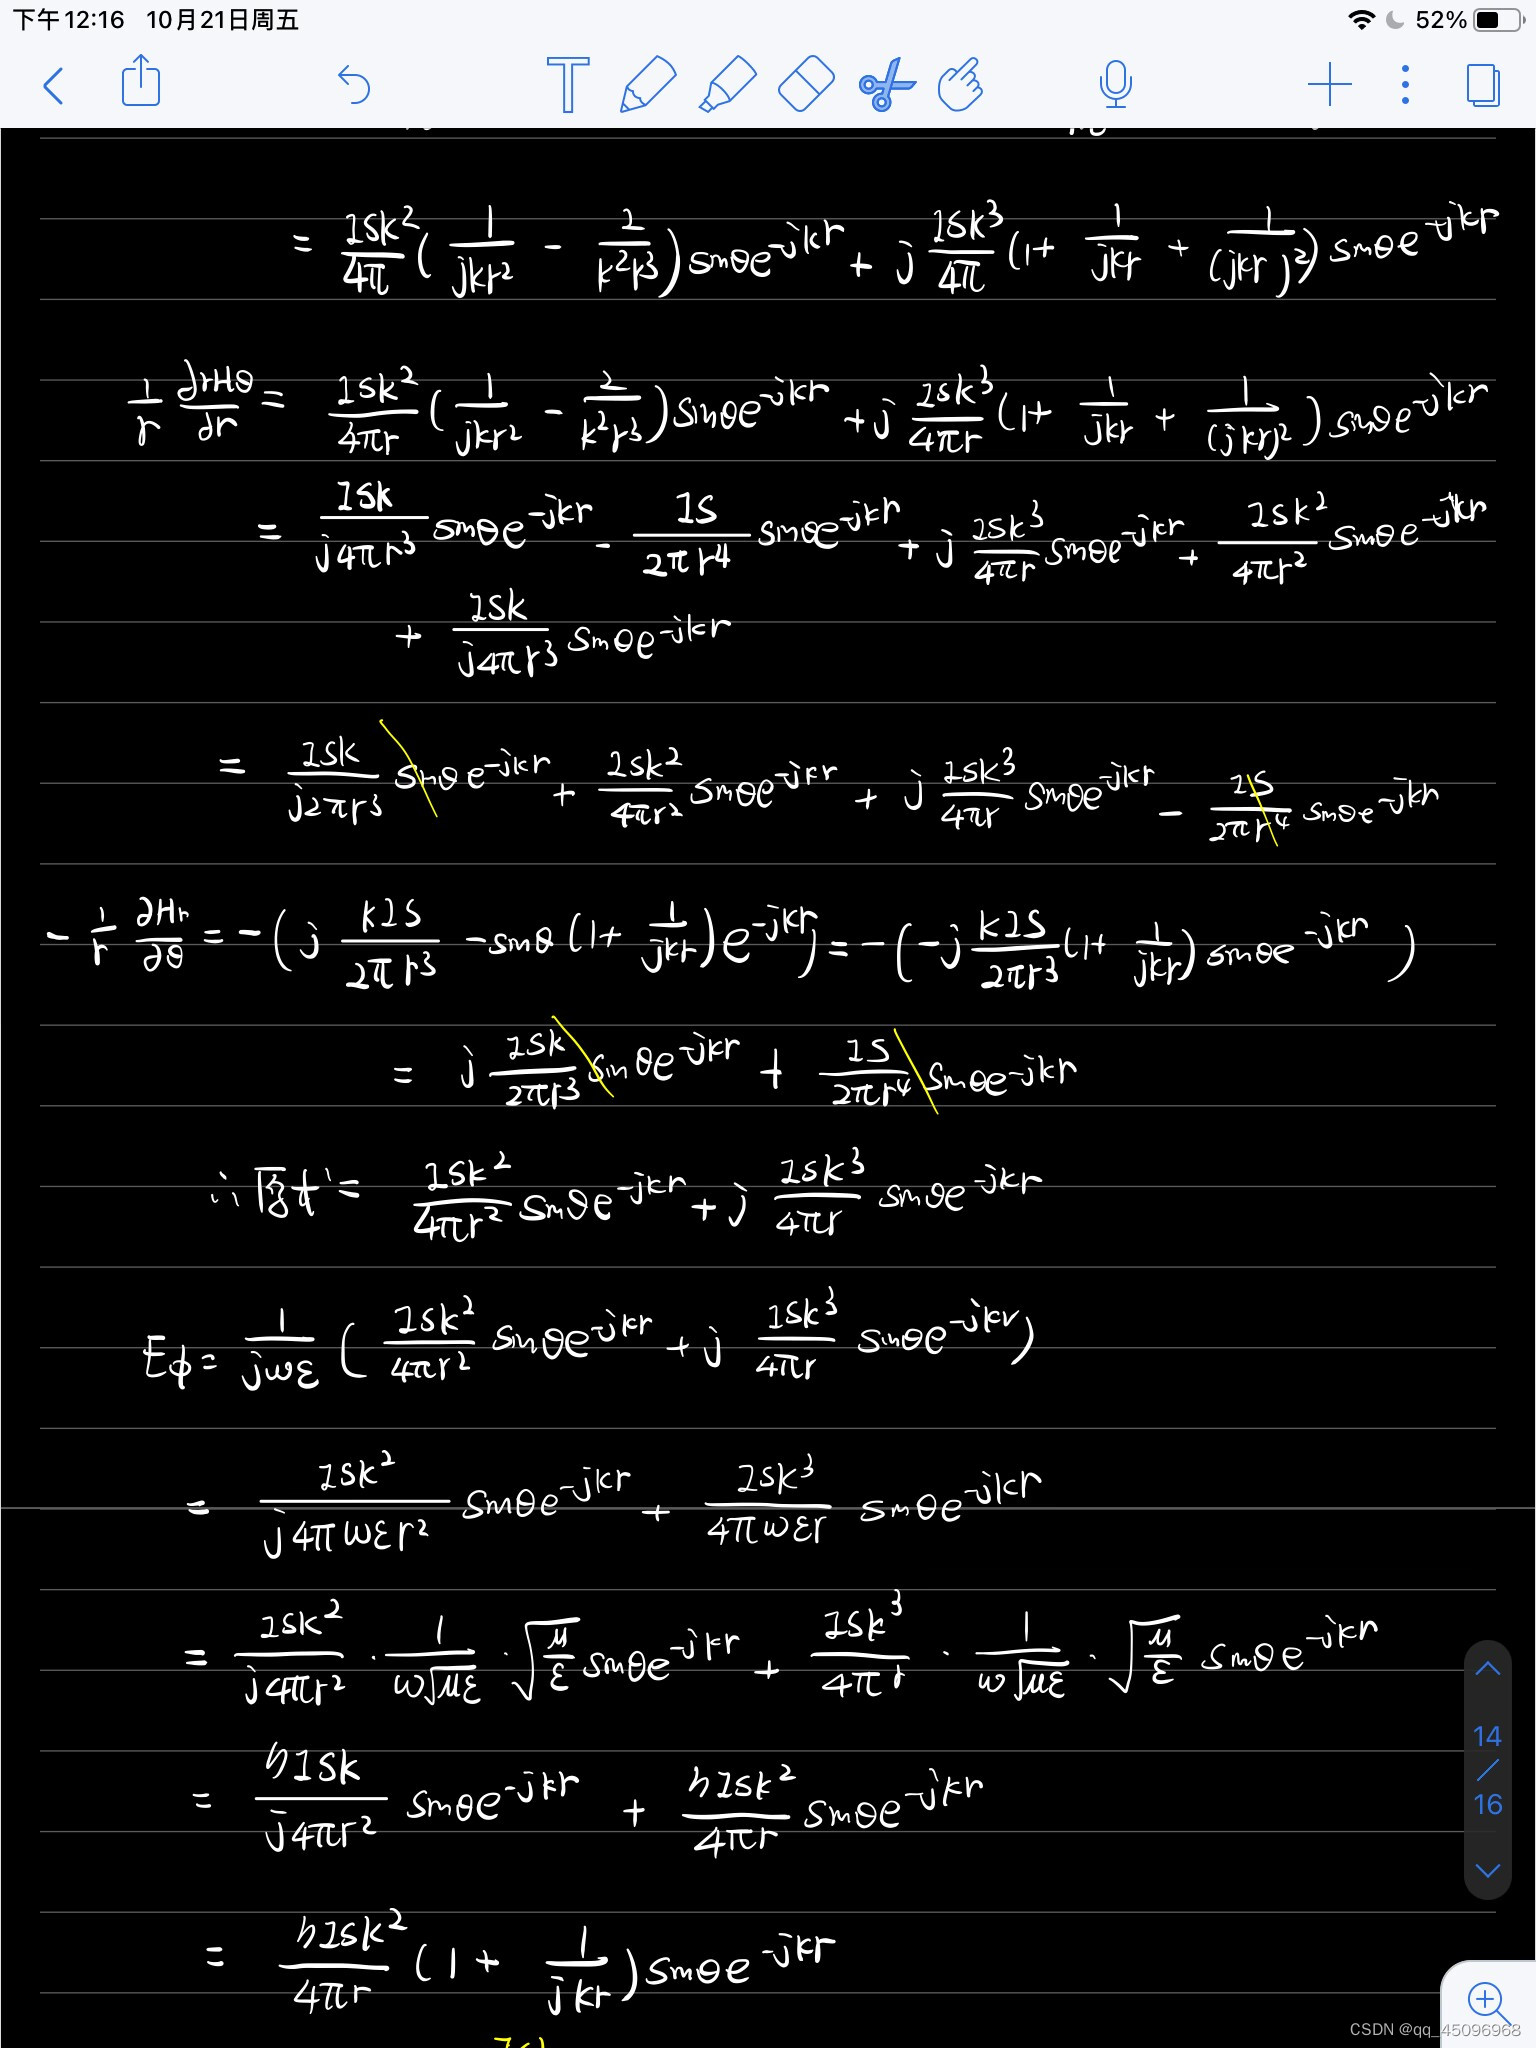 下午12:16 10月21日周五 52%
= ISk²/4π (1/jkr² - 2/k²r³) sinθe^-jkr + j ISk³/4π (1 + 1/jkr + 1/(jkr)²) sinθe^-jkr
1/r ∂rHθ/∂r = ISk²/4πr (1/jkr² - 2/k²r³) sinθe^-jkr + j ISk³/4πr (1 + 1/jkr + 1/(jkr)²) sinθe^-jkr
= ISk/j4πr³ sinθe^-jkr - IS/2πr⁴ sinθe^-jkr + j ISk³/4πr sinθe^-jkr + ISk²/4πr² sinθe^-jkr
+ ISk/j4πr³ sinθe^-jkr
= ISk/j2πr³ sinθe^-jkr + ISk²/4πr² sinθe^-jkr + j ISk³/4πr sinθe^-jkr - IS/2πr⁴ sinθe^-jkr
- 1/r ∂Hr/∂θ = -(j kIS/2πr³ -sinθ (1 + 1/jkr) e^-jkr) = -(-j kIS/2πr³ (1 + 1/jkr) sinθe^-jkr)
= j ISk/2πr³ sinθe^-jkr + IS/2πr⁴ sinθe^-jkr
∴ = ISk²/4πr² sinθe^-jkr + j ISk³/4πr sinθe^-jkr
Eφ = 1/jωε (ISk²/4πr² sinθe^-jkr + j ISk³/4πr sinθe^-jkr)
= ISk²/j4πωεr² sinθe^-jkr + ISk³/4πωεr sinθe^-jkr
= ISk²/j4πr² · 1/ω√με · √μ/ε sinθe^-jkr + ISk³/4πr · 1/ω√με · √μ/ε sinθe^-jkr
14
/
16
= ηISk/j4πr² sinθe^-jkr + ηISk²/4πr sinθe^-jkr
= ηISk²/4πr (1 + 1/jkr) sinθe^-jkr
CSDN @qq_45096968